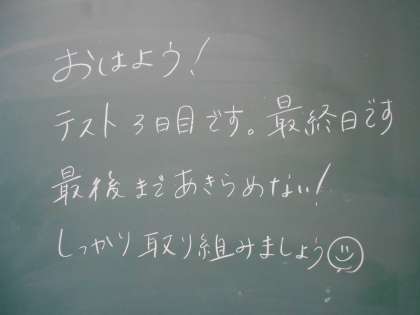 おはよう!
テスト3日目です。最終日です
最後まであきらめない!
しっかり取り組みましょう